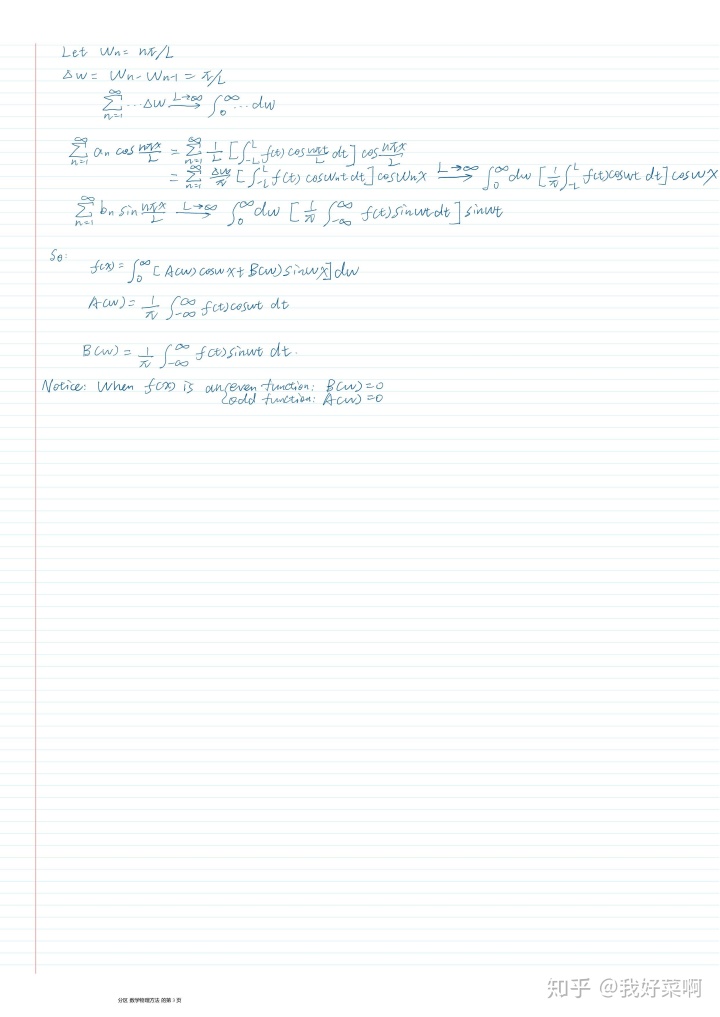 Let Wn = nπ/L
Δw = Wn - Wn-1 = π/L
∑_{n=1}^{∞} ... Δw —L→∞→ ∫_0^∞ ... dw
∑_{n=1}^{∞} an cos nπx/L = ∑_{n=1}^{∞} 1/L [∫_{-L}^{L} f(t) cos nπt/L dt] cos nπx/L
= ∑_{n=1}^{∞} Δw/π [∫_{-L}^{L} f(t) cosWnt dt] cosWnx —L→∞→ ∫_0^∞ dw [1/π ∫_{-L}^{L} f(t)coswt dt] coswx
∑_{n=1}^{∞} bn sin nπx/L —L→∞→ ∫_0^∞ dw [1/π ∫_{-∞}^{∞} f(t)sinwtdt] sinwt
So:
f(x) = ∫_0^∞ [A(w)coswx + B(w)sinwx] dw
A(w) = 1/π ∫_{-∞}^{∞} f(t)coswt dt
B(w) = 1/π ∫_{-∞}^{∞} f(t)sinwt dt.
Notice: When f(x) is an { even function: B(w)=0
odd function: A(w)=0
分区 数学物理方法 的第 1 页
知乎 @我好菜啊